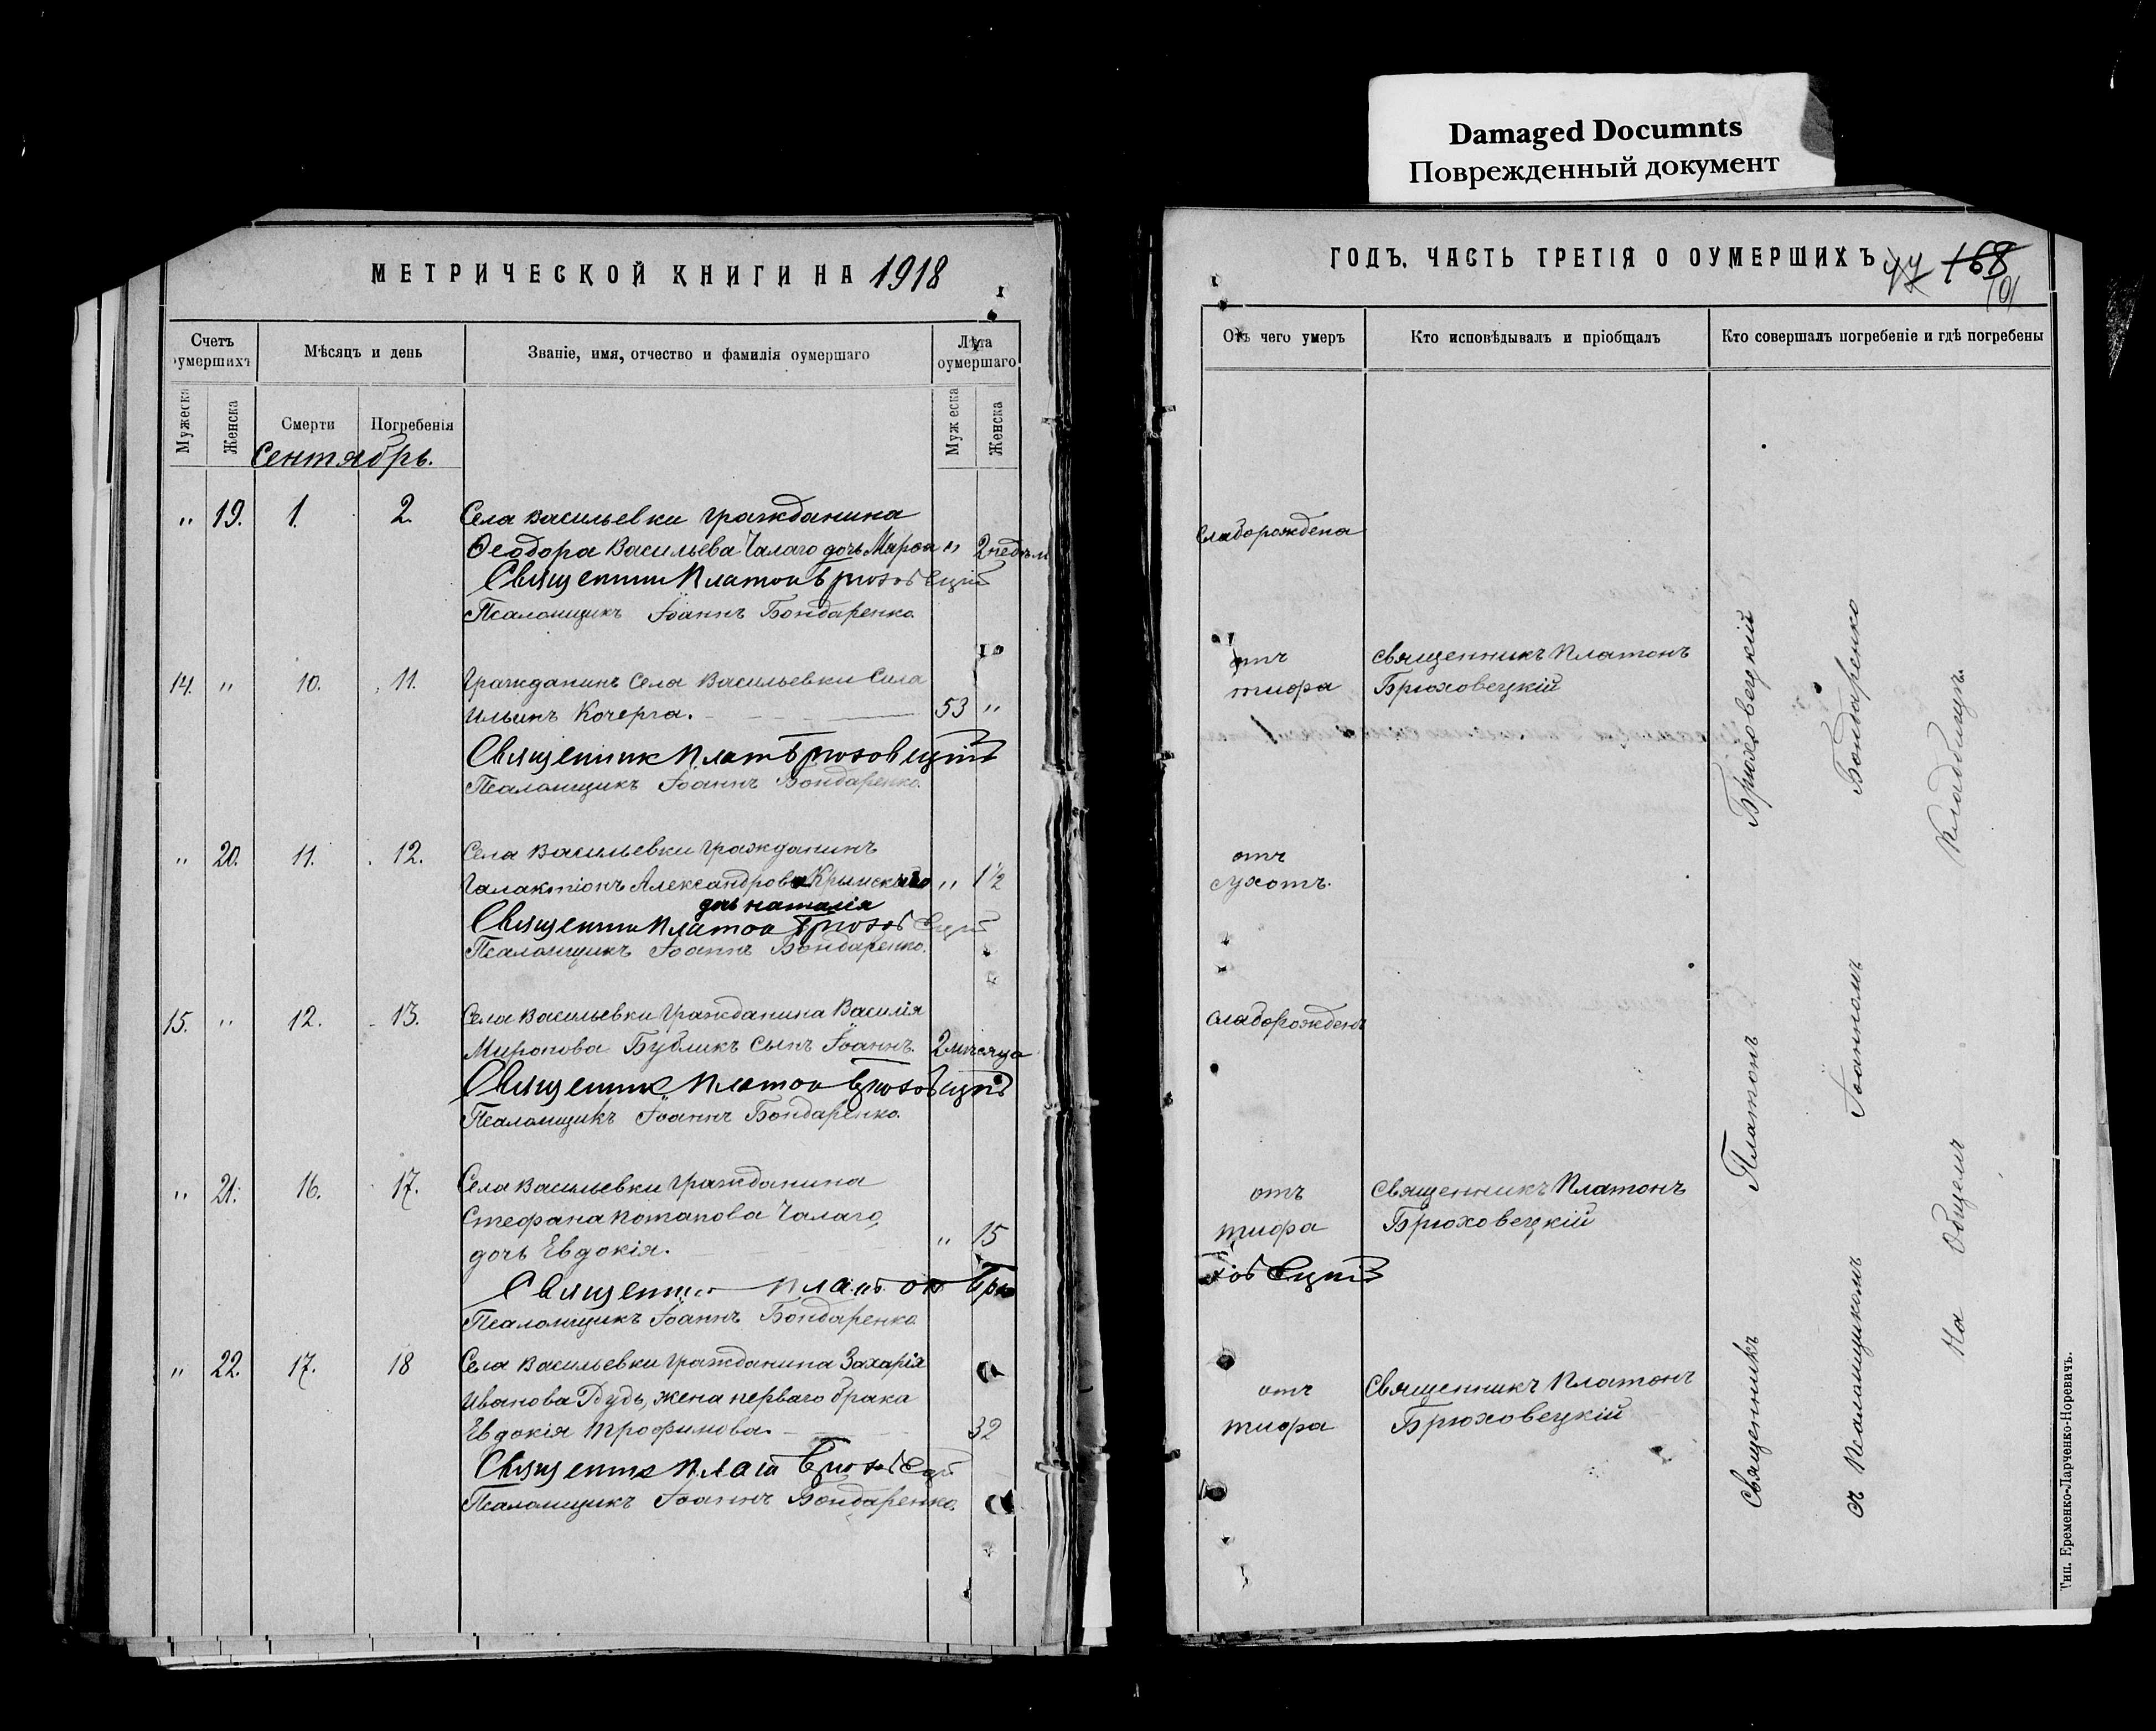 Damaged Documnts
Поврежденный документ
МЕТРИЧЕСКОЙ КНИГИ НА 1918
Счетъ оумершихъ
Мѣсяцъ и день
Званіе, имя, отчество и фамилія оумершаго
Лѣта оумершаго
Мужеска
Женска
Смерти
Погребенія
Мужеска
Женска
Сентябрь.
" 19. 1. 2. Села Васильевки гражданина
Ѳеодора Васильева Чалаго дочь Марѳа " 2 недѣли
Священник Платон Брюховецкій
Псаломщикъ Іоаннъ Бондаренко.
14. " 10. 11. Гражданинъ Села Васильевки Сила
Ильинъ Кочерга. 53 "
Священник Плат Брюховецкій
Псаломщикъ Іоаннъ Бондаренко.
" 20. 11. 12. Села Васильевки гражданинъ
Галактіонъ Александрова Крымскаго " 1½
дочь Наталія
Священник Платон Брюховецкій
Псаломщикъ Іоаннъ Бондаренко.
15. " 12. 13. Села Васильевки гражданина Василія
Миронова Бубликъ сынъ Іоаннъ. 2 мѣсяца
Священник Платон Брюховецкій
Псаломщикъ Іоаннъ Бондаренко.
" 21. 16. 17. Села Васильевки гражданина
Стефана Потапова Чалаго,
дочь Евдокія. " 15
Священник Платон Брю
Псаломщикъ Іоаннъ Бондаренко
" 22. 17. 18 Села Васильевки гражданина Захарія
Иванова Дудь, жена перваго брака
Евдокія Трофимова. 32
Священник Плат Брюховецкій
Псаломщикъ Іоаннъ Бондаренко.
ГОДЪ. ЧАСТЬ ТРЕТІЯ О ОУМЕРШИХЪ 168
Отъ чего умеръ
Кто исповѣдывалъ и пріобщалъ
Кто совершалъ погребеніе и гдѣ погребены
Слаборождена
отъ Священникъ Платонъ
тифа Брюховецкій
отъ
сухотъ.
Слаборожденъ
отъ Священникъ Платонъ
тифа Брюховецкій
ховецкій
отъ Священникъ Платонъ
тифа Брюховецкій
Священникъ Платонъ Брюховецкій
съ Псаломщикомъ Іоанномъ Бондаренко
На Общемъ Кладбищѣ.
Тип. Еременко-Ларченко-Норевичъ.